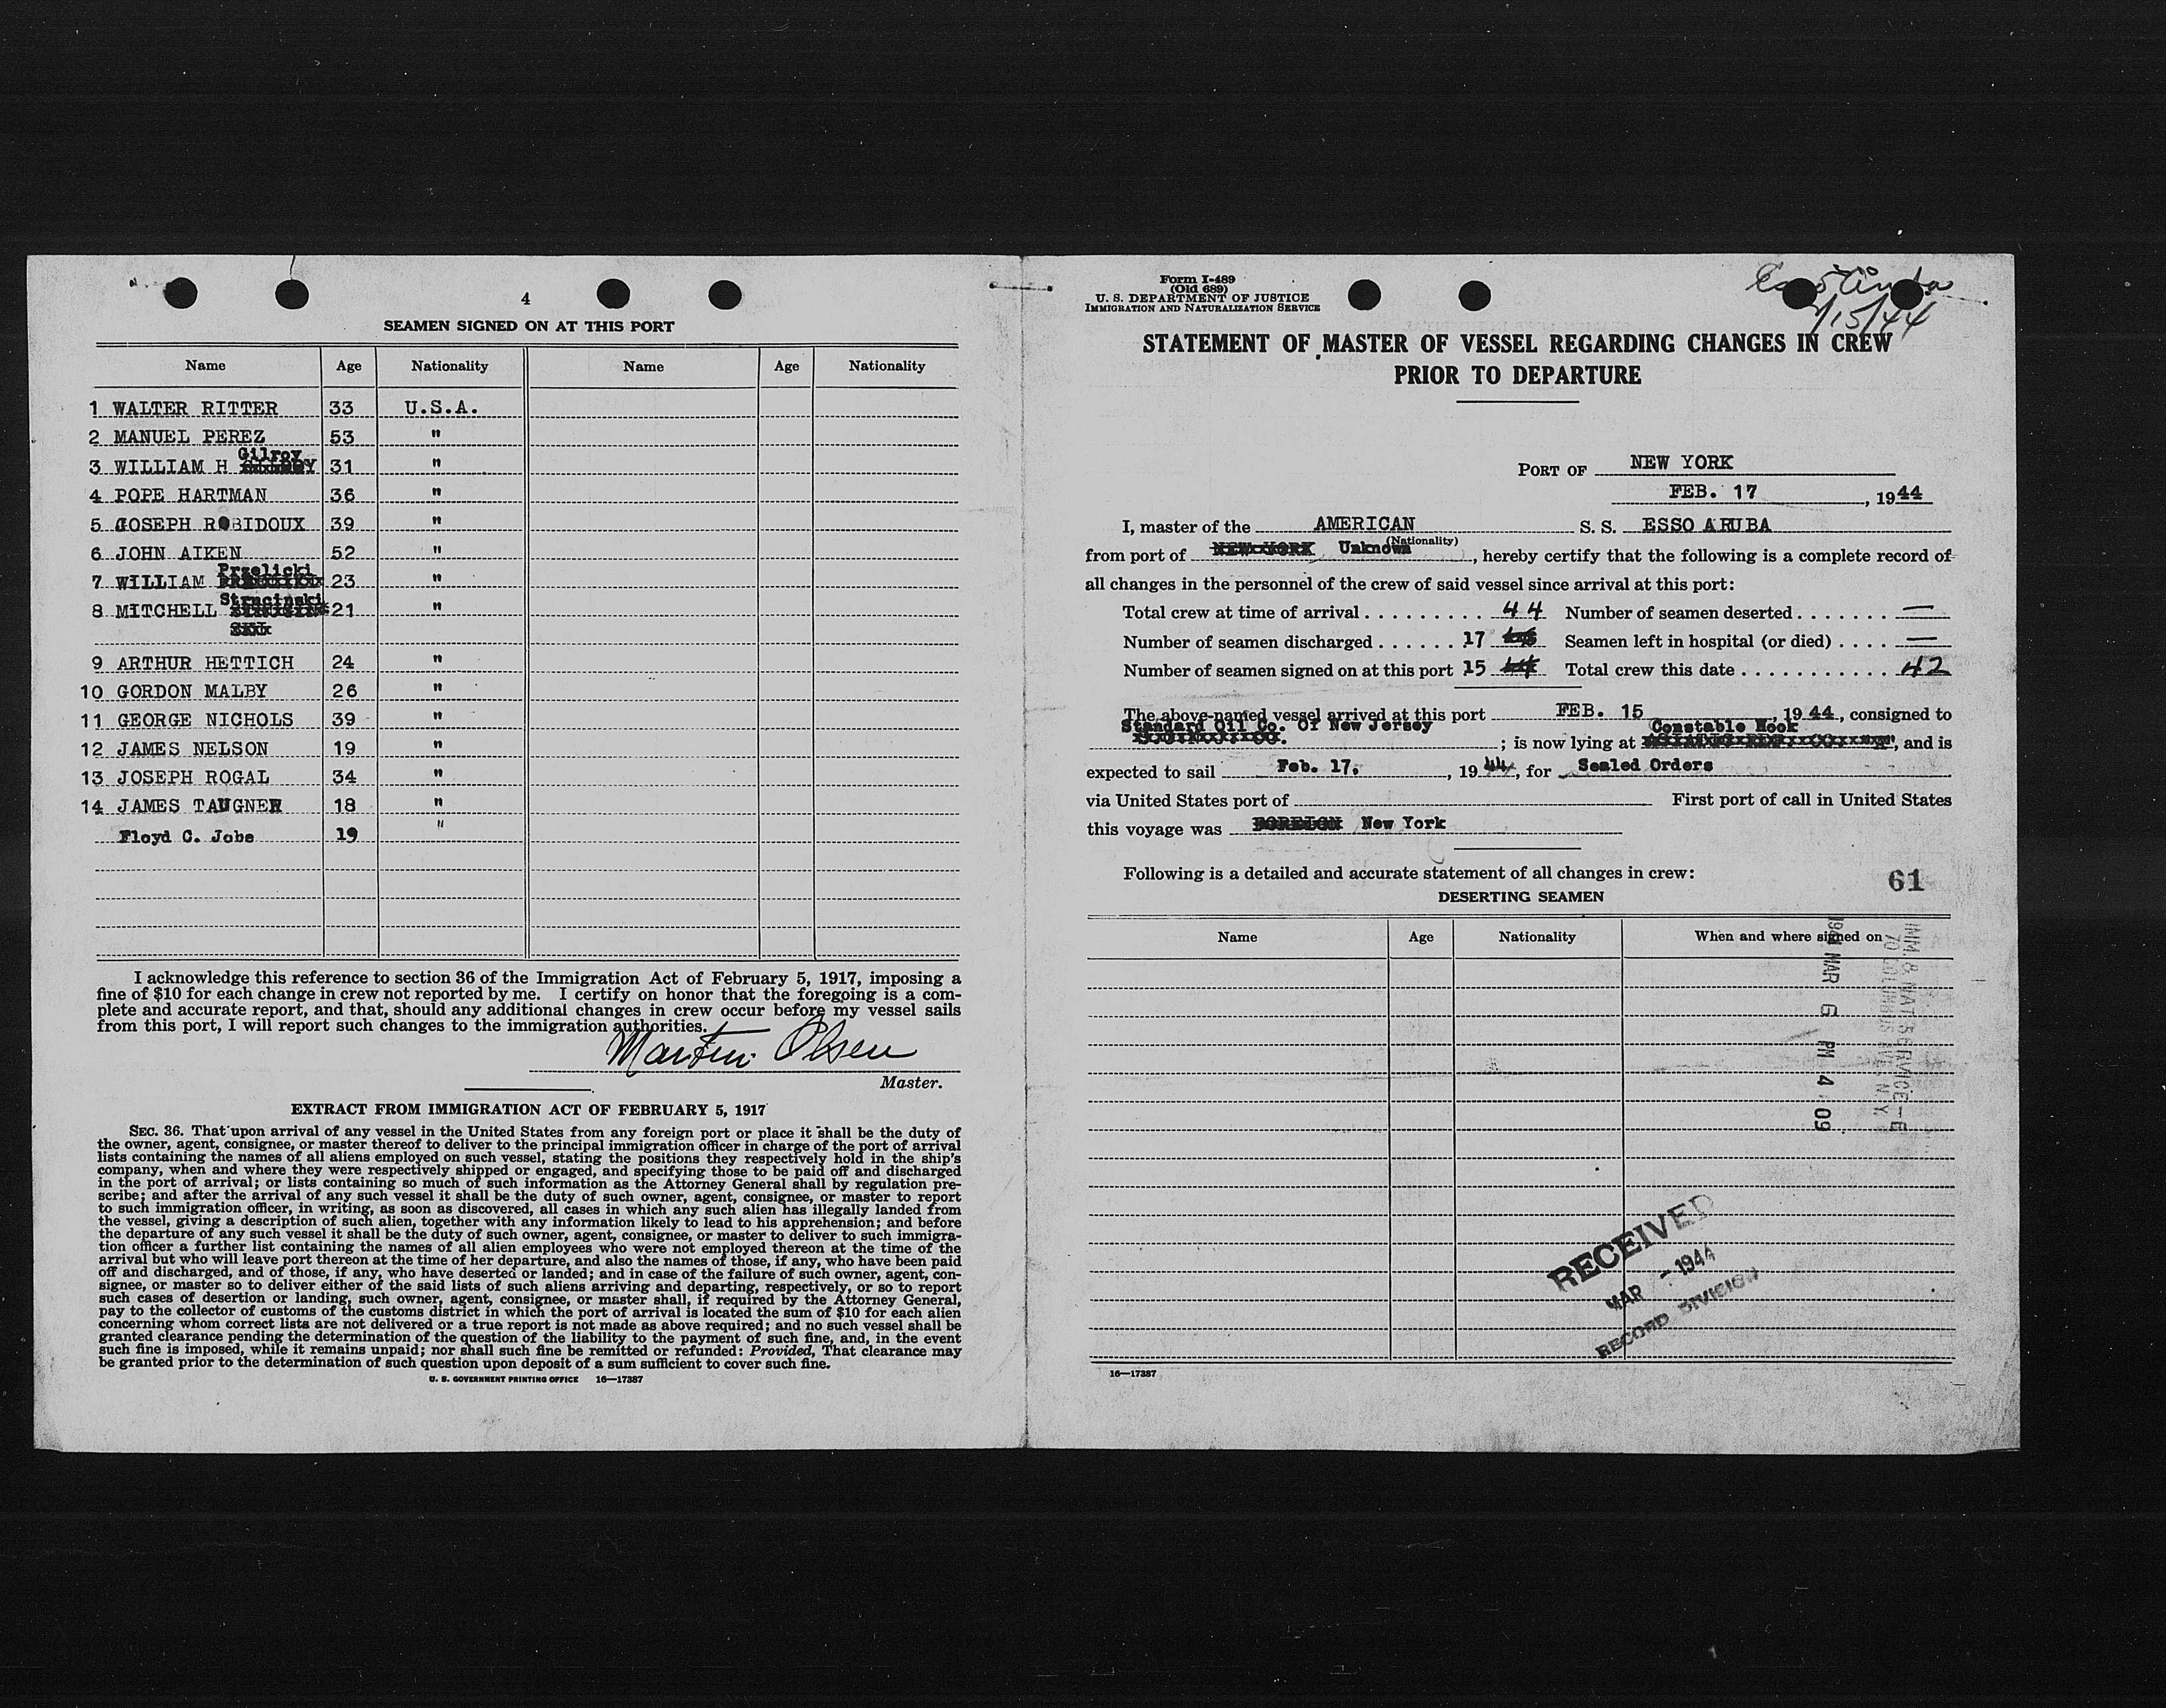 4
SEAMEN SIGNED ON AT THIS PORT
Name Age Nationality Name Age Nationality
1 WALTER RITTER 33 U.S.A.
2 MANUEL PEREZ 53 "
3 WILLIAM H Gilroy 31 "
4 POPE HARTMAN 36 "
5 JOSEPH ROBIDOUX 39 "
6 JOHN AIKEN 52 "
7 WILLIAM Przelicki 23 "
8 MITCHELL Strucinski 21 "
9 ARTHUR HETTICH 24 "
10 GORDON MALBY 26 "
11 GEORGE NICHOLS 39 "
12 JAMES NELSON 19 "
13 JOSEPH ROGAL 34 "
14 JAMES TAUGNER 18 "
Floyd C. Jobe 19 "
I acknowledge this reference to section 36 of the Immigration Act of February 5, 1917, imposing a
fine of $10 for each change in crew not reported by me. I certify on honor that the foregoing is a com-
plete and accurate report, and that, should any additional changes in crew occur before my vessel sails
from this port, I will report such changes to the immigration authorities.
Martin Olsen
Master.
EXTRACT FROM IMMIGRATION ACT OF FEBRUARY 5, 1917
SEC. 36. That upon arrival of any vessel in the United States from any foreign port or place it shall be the duty of
the owner, agent, consignee, or master thereof to deliver to the principal immigration officer in charge of the port of arrival
lists containing the names of all aliens employed on such vessel, stating the positions they respectively hold in the ship's
company, when and where they were respectively shipped or engaged, and specifying those to be paid off and discharged
in the port of arrival; or lists containing so much of such information as the Attorney General shall by regulation pre-
scribe; and after the arrival of any such vessel it shall be the duty of such owner, agent, consignee, or master to report
to such immigration officer, in writing, as soon as discovered, all cases in which any such alien has illegally landed from
the vessel, giving a description of such alien, together with any information likely to lead to his apprehension; and before
the departure of any such vessel it shall be the duty of such owner, agent, consignee, or master to deliver to such immigra-
tion officer a further list containing the names of all alien employees who were not employed thereon at the time of the
arrival but who will leave port thereon at the time of her departure, and also the names of those, if any, who have been paid
off and discharged, and of those, if any, who have deserted or landed; and in case of the failure of such owner, agent, con-
signee, or master so to deliver either of the said lists of such aliens arriving and departing, respectively, or so to report
such cases of desertion or landing, such owner, agent, consignee, or master shall, if required by the Attorney General,
pay to the collector of customs of the customs district in which the port of arrival is located the sum of $10 for each alien
concerning whom correct lists are not delivered or a true report is not made as above required; and no such vessel shall be
granted clearance pending the determination of the question of the liability to the payment of such fine, and, in the event
such fine is imposed, while it remains unpaid; nor shall such fine be remitted or refunded: Provided, That clearance may
be granted prior to the determination of such question upon deposit of a sum sufficient to cover such fine.
U. S. GOVERNMENT PRINTING OFFICE 16—17387
Form I-489
(Old 689)
U. S. DEPARTMENT OF JUSTICE
IMMIGRATION AND NATURALIZATION SERVICE
STATEMENT OF MASTER OF VESSEL REGARDING CHANGES IN CREW
PRIOR TO DEPARTURE
PORT OF NEW YORK
FEB. 17, 1944
I, master of the AMERICAN S. S. ESSO ARUBA
(Nationality)
from port of NEW YORK Unknown, hereby certify that the following is a complete record of
all changes in the personnel of the crew of said vessel since arrival at this port:
Total crew at time of arrival . . . . . . . . . 44 Number of seamen deserted . . . . . . . —
Number of seamen discharged . . . . . . 17 Seamen left in hospital (or died) . . . . —
Number of seamen signed on at this port 15 Total crew this date . . . . . . . . . . . . 42
The above-named vessel arrived at this port FEB. 15, 1944, consigned to
Standard Oil Co. Of New Jersey Constable Hook
; is now lying at , and is
expected to sail Feb. 17, 1944, for Sealed Orders
via United States port of First port of call in United States
this voyage was FOREIGN New York
Following is a detailed and accurate statement of all changes in crew:
61
DESERTING SEAMEN
Name Age Nationality When and where signed on
IMM. & NAT. SERVICE—E
70 COLUMBUS AVE. N.Y.
1944 MAR 6 PM 4 09
RECEIVED
MAR - 1944
RECORD DIVISION
16—17387